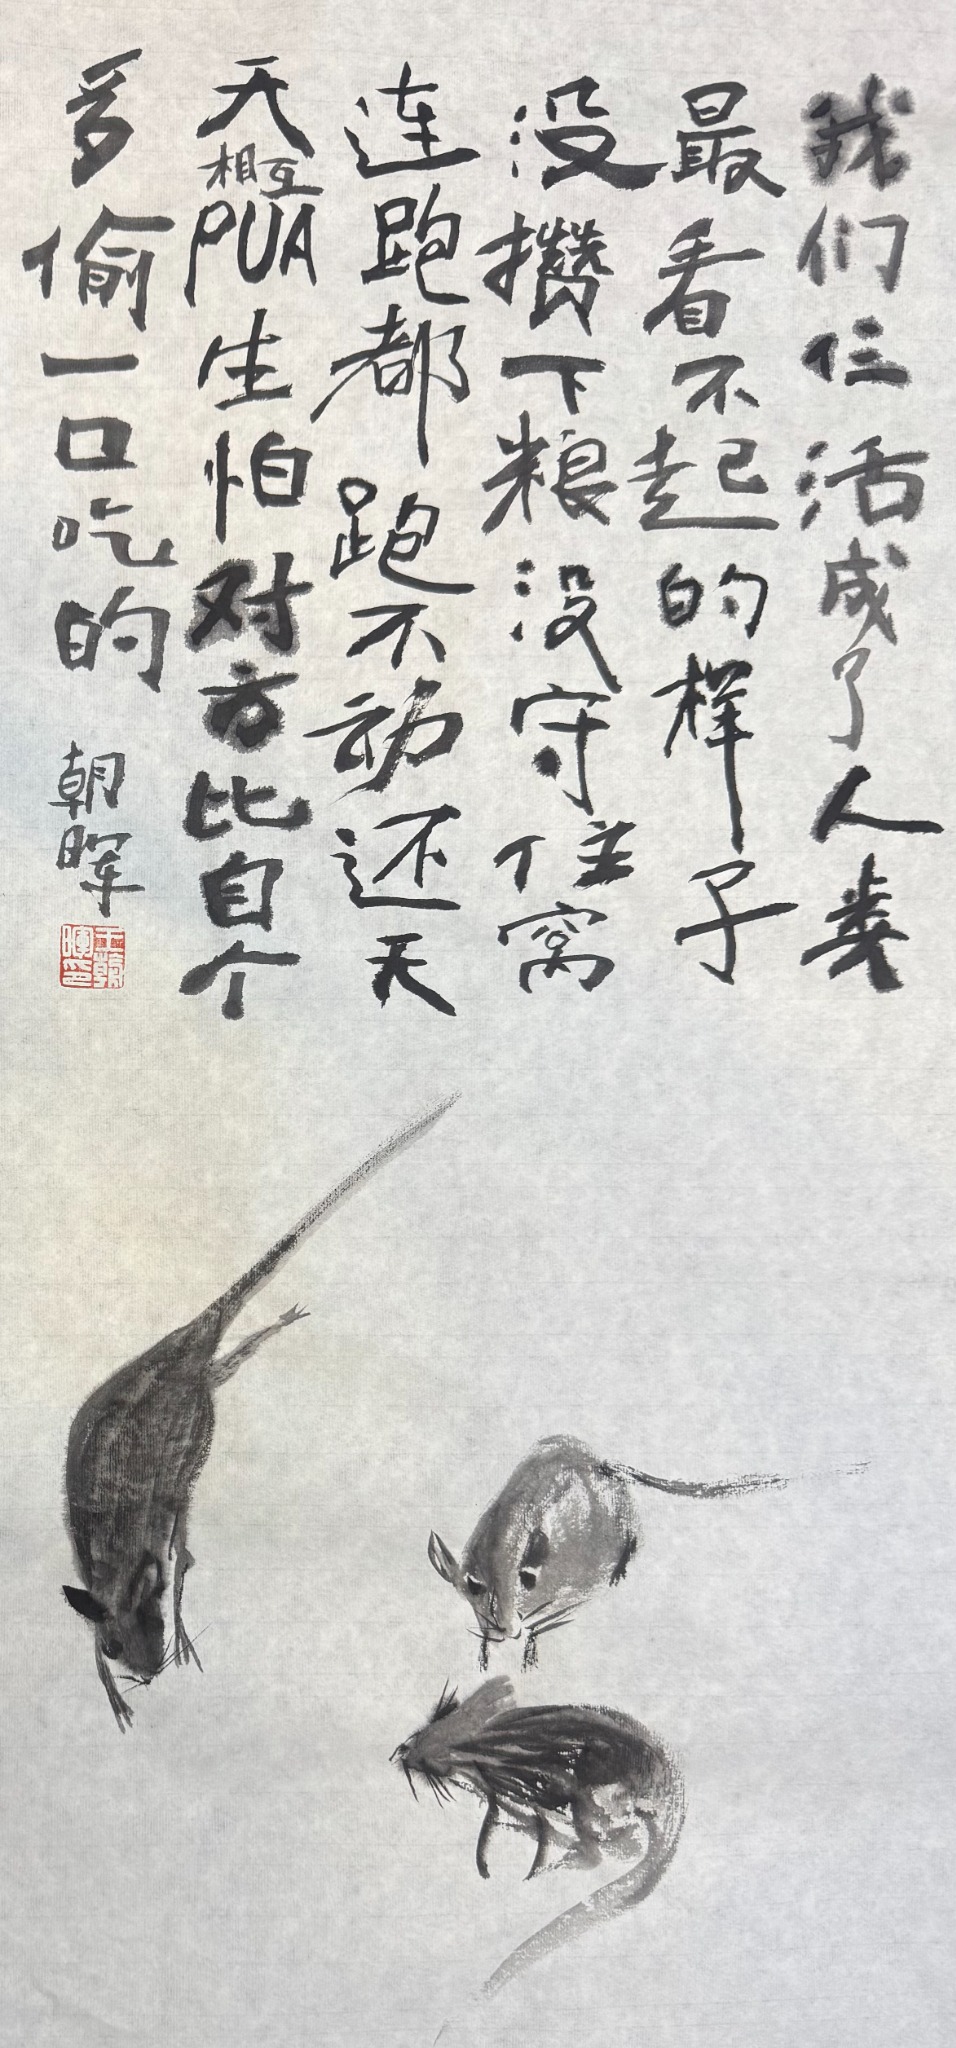 我们仨活成了人类
最看不起的样子
没攒下粮没守住窝
连跑都跑不动还天
天相互PUA生怕对方比自个
多偷一口吃的
朝晖
王朝暉印